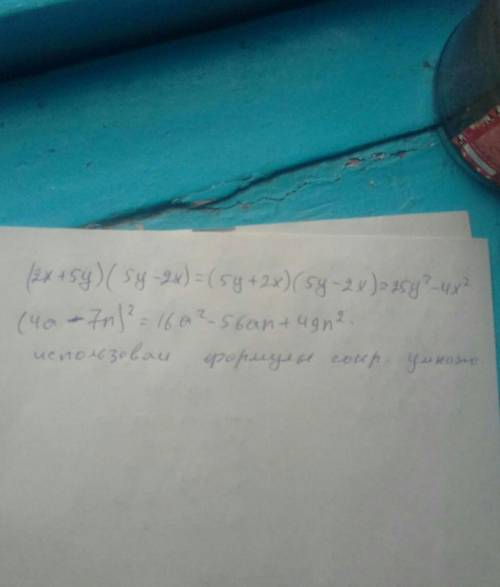 (2x+5y)(5y-2x)=(5y+2x)(5y-2x)=25y²-4x²
(4a-7n)²=16a²-56an+49n².
использовал формулы сокр. умнож